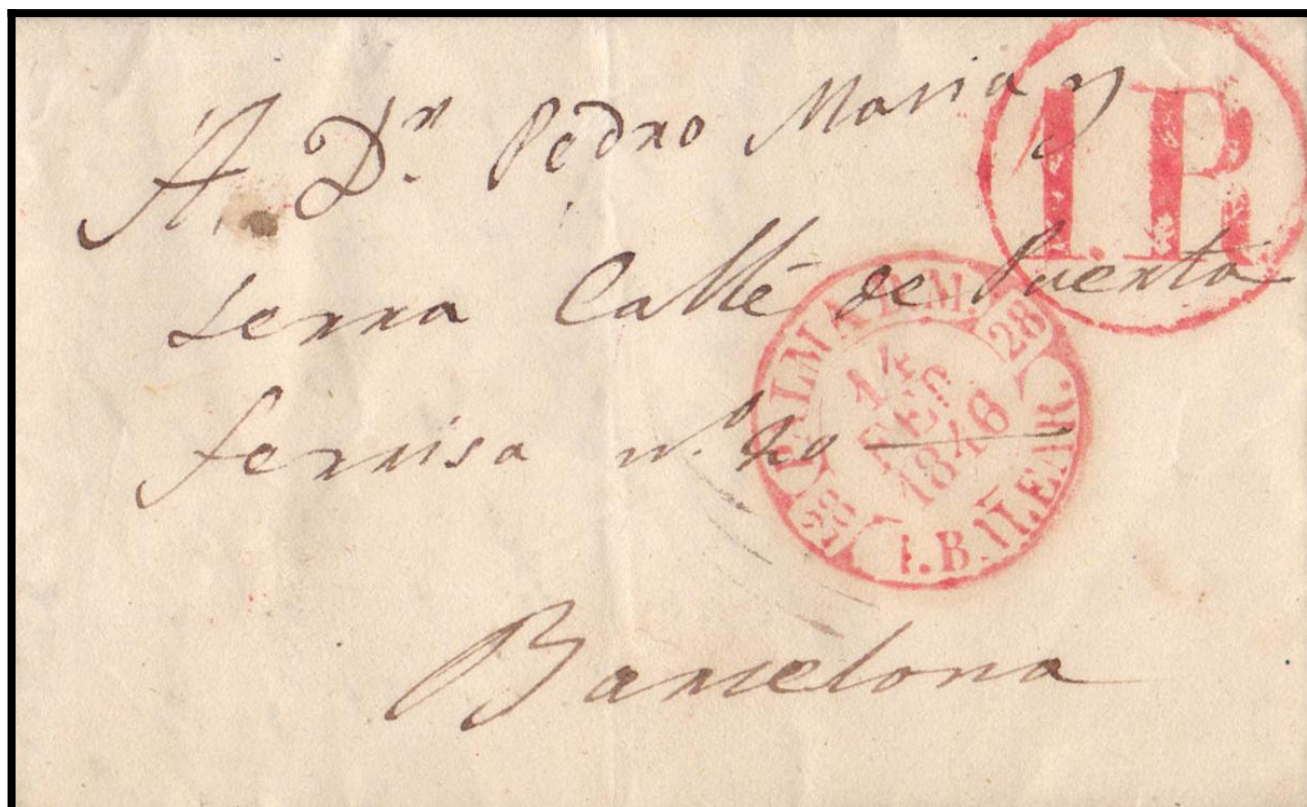 A Dⁿ. Pedro Maria y
Serra Calle de Puerta
ferrisa nº. 20
Barcelona
1.R
PALMA D M.
28
14
FEB
1846
28
I. BALEAR.